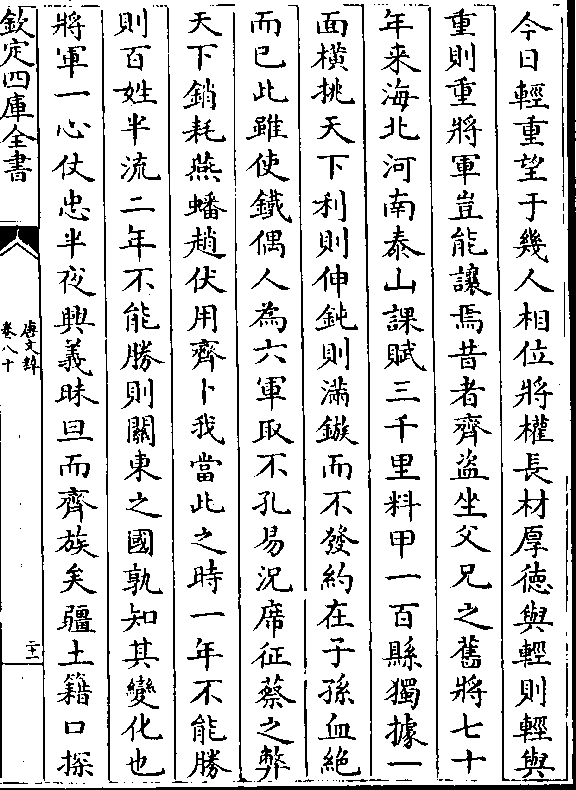 今日輕重望于幾人相位將權長材厚德與輕則輕與
重則重將軍豈能讓焉昔者齊盜坐父兄之舊將七十
年来海北河南泰山課賦三千里料甲一百縣獨據一
面横挑天下利則伸鈍則滿鏃而不發約在子孫血絶
而已此雖使鐵偶人為六軍取不孔易況席征蔡之弊
天下銷耗燕蟠趙伏用齊卜我當此之時一年不能勝
則百姓半流二年不能勝則關東之國孰知其變化也
將軍一心仗忠半夜興義昧旦而齊族矣疆土籍口探
欽定四庫全書
唐文粹
卷八十
二十二